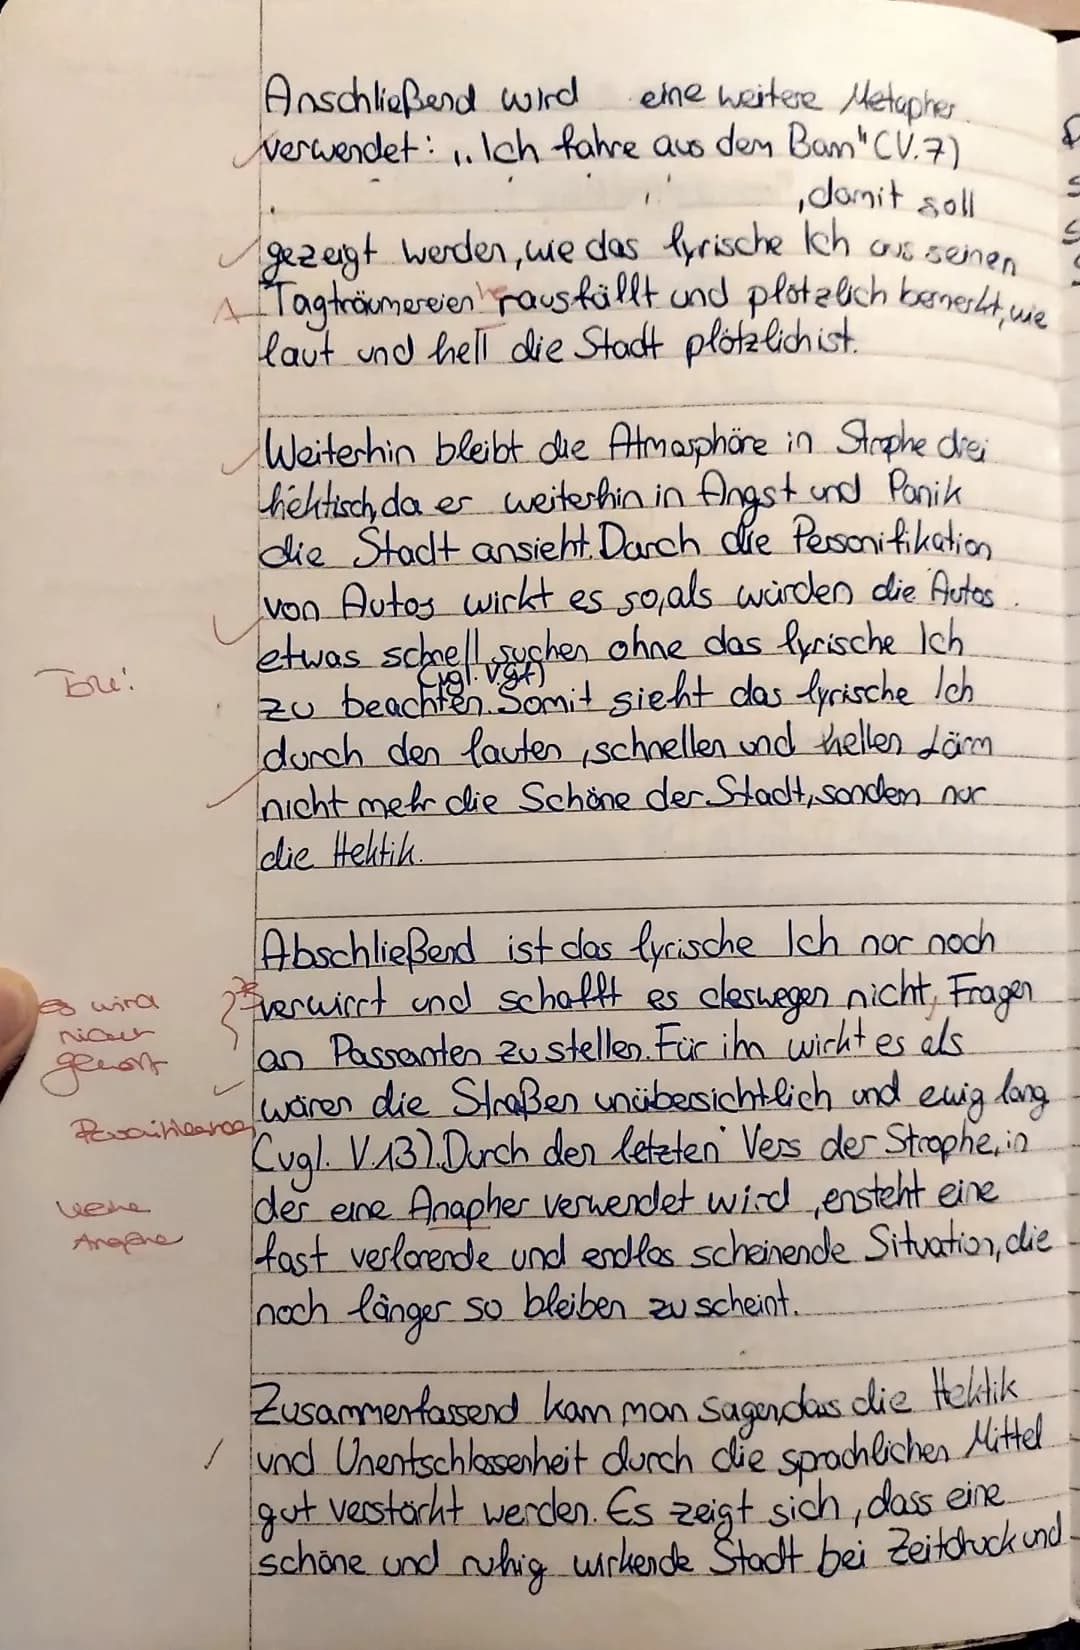 Anschließend wird eine weitere Metapher
verwendet: „Ich fahre aus dem Bam" (V.7)
, damit soll
gezeigt werden, wie das lyrische Ich aus seinen
A Tagträumereien rausfällt und plötzlich bemerkt, wie
laut und hell die Stadt plötzlich ist.
Weiterhin bleibt die Atmosphäre in Strophe drei
hektisch, da er weiterhin in Angst und Panik
die Stadt ansieht. Durch die Personifikation
von Autos wirkt es so, als würden die Autos
etwas schnell suchen ohne das lyrische Ich
(vgl. V9f)
zu beachten. Somit sieht das lyrische Ich
durch den lauten, schnellen und hellen Lärm
nicht mehr die Schöne der Stadt, sondern nur
die Hektik.
Abschließend ist das lyrische Ich nur noch
verwirrt und schafft es deswegen nicht, Fragen
an Passanten zu stellen. Für ihn wirkt es als
wären die Straßen unübersichtlich und ewig lang
(vgl. V.13). Durch den letzten Vers der Strophe, in
der eine Anapher verwendet wird, ensteht eine
fast verlorende und endlos scheinende Situation, die
noch länger so bleiben zu scheint.
Zusammenfassend kam man sagen, das die Hektik
und Unentschlossenheit durch die sprachlichen Mittel
gut verstärkt werden. Es zeigt sich, dass eine
schöne und ruhig wirkende Stadt bei Zeitdruck und
es wird
nicht
keine